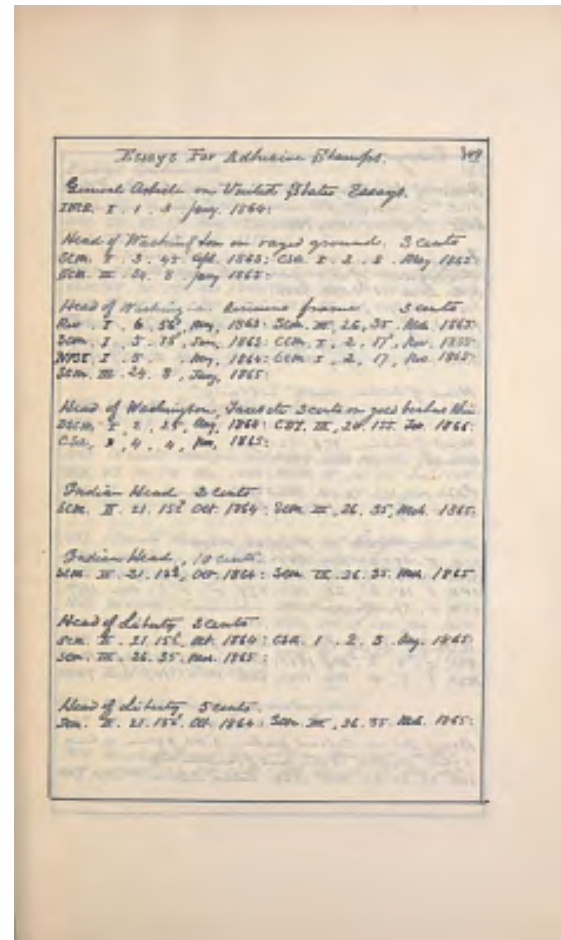 Essays For Adhesive Stamps. 349
General Article on United States Essays.
I . 1 . 3 Jany. 1864:
Head of Washington on raged ground. 3 cents
SCM. I . 3 . 45 Apl. 1863: CSA. I . 2 . 2 . May 1865:
SCM. III . 24 . 8 . Jany 1865:
Head of Washington frame. 3 cents.
I . 6 . 56, May, 1863: SCM. III, 26, 35, Mch. 1865:
SCM. I . 5 . 75, Jun, 1863: CCM. I , 2 , 17, Nov. 1855:
I . 5 . May, 1864: CCM. I , 2 , 17, Nov. 1865:
SCM. III . 24 . 8 , Jany, 1865:
Head of Washington, 3 cents on gold
I , 2 , 25, Aug, 1864: III, 24, Jan. 1865:
CSA, I , 4 . 4 , Nov, 1865:
Indian Head 3 cents
SCM. II . 21. 152 Oct. 1864: SCM. III , 26 . 35, Mch. 1865:
Indian Head, 10 cents.
SCM. II . 21. 152, Oct. 1864: SCM. III . 26. 35. Mch. 1865
Head of Liberty 3 cents
SCM. II . 21. 152, Oct. 1864: CSA. 1 . 2 . 3 . 1865
SCM. III . 26. 35. Mch. 1865:
Head of Liberty 5 cents.
SCM. II . 21. 152. Oct. 1864: SCM. III , 26. 35. Mch. 1865: